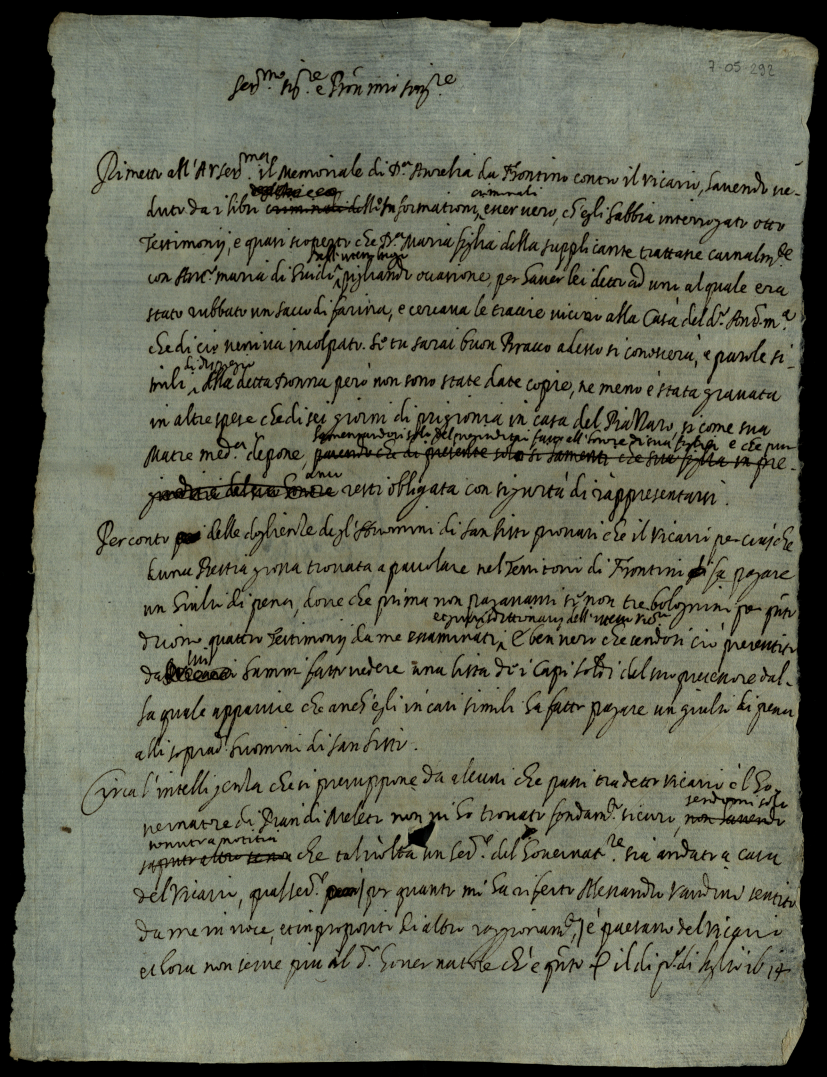 7-05-292
Ser.mo Sig.re e Pron mio Sing.re
Rimetto all'A.V. Ser.ma il Memoriale di D.a Aurelia da Frontino contro il Vicario, havendo ve-
duto da i libri criminali dell'Informationi criminali, esser vero, ch'egli habbia interrogato otto
Testimonij, e quasi scoperto che D.a Maria figlia della supplicante trattasse carnalm.te
con Ant.o maria di Guidi, pigliando occasione, per haver lei detto ad uno al quale era
stato rubbato un sacco di farina, e cercava le traccie vicino alla Casa del d.o Ant.o m.a
che di ciò veniva incolpato. Se tu sarai buon Bracco adesso si conoscerà, e parole si-
mili di disprezzo. Alla detta Donna però non sono state date copie, ne meno è stata gravata
in altre spese che di sei giorni di prigionia in casa del Piazzaro, si come sua
Matre med.a depone, lamentandosi solo del pregiuditio fatto all'honore di sua figlia e che pur
anco resti obligata con sigurtà di rappresentarsi.
Per conto delle doglienze degl'Huomini di San Sisto provasi che il Vicario per ciasche
duna Bestia grossa trovata a pascolare nel Territorio di Frontino fa pagare
un Giulio di pena, dove che prima non pagavano se non tre bolognini per q.to
dicono quattro Testimonij da me esaminati, È ben vero che sendosi ciò presentito
da lui hammi fatto vedere una lista de i Capi soldi del suo precessore dal-
la quale apparisce che anch'egli in casi simili ha fatto pagare un giulio di pena
alli soprad.i huomini di San Sisto.
Circa l'intelligenza che si presuppone da alcuni che passi tra detto Vicario e'l Go-
vernatore di Pian di Meleto non vi ho trovato fondam.to sicuro, sendomi solo
venuta notitia che talvolta un Ser.e del Governat.re sia andato a casa
del Vicario, qual ser.e per quanto mi ha riferto Alessandro Vandini sentito
da me in voce, et in proposito di altro raggionam.to, è paesano del Vicario
et hora non serve più al d.o Governatore ch'è q.to il dì p.o di luglio 1614